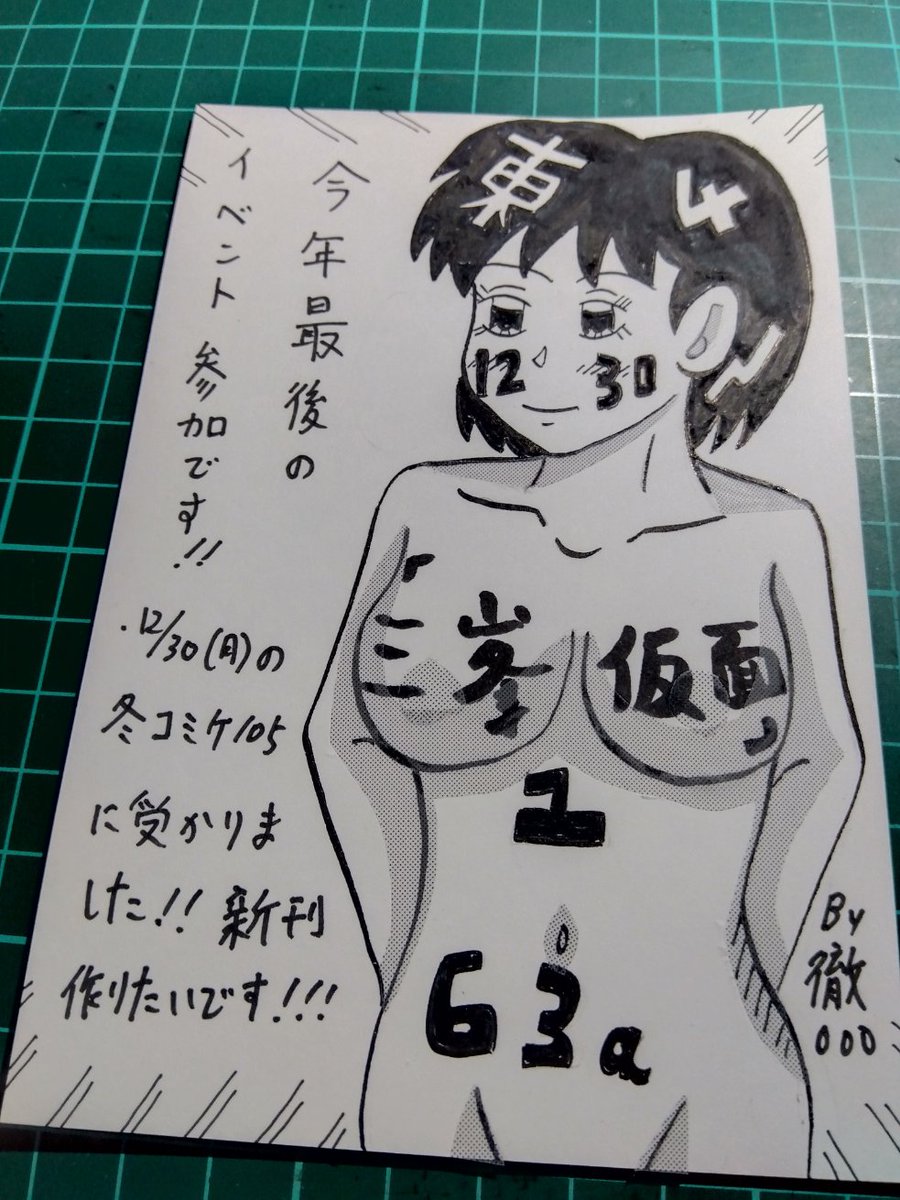 今年最後の
イベント参加です!!
.12/30(月)の
冬コミケ105
に受かりま
した!! 新刊
作りたいです!!!
東 4
12 30
「三峯仮面」
ユ
63a
By
徹
000